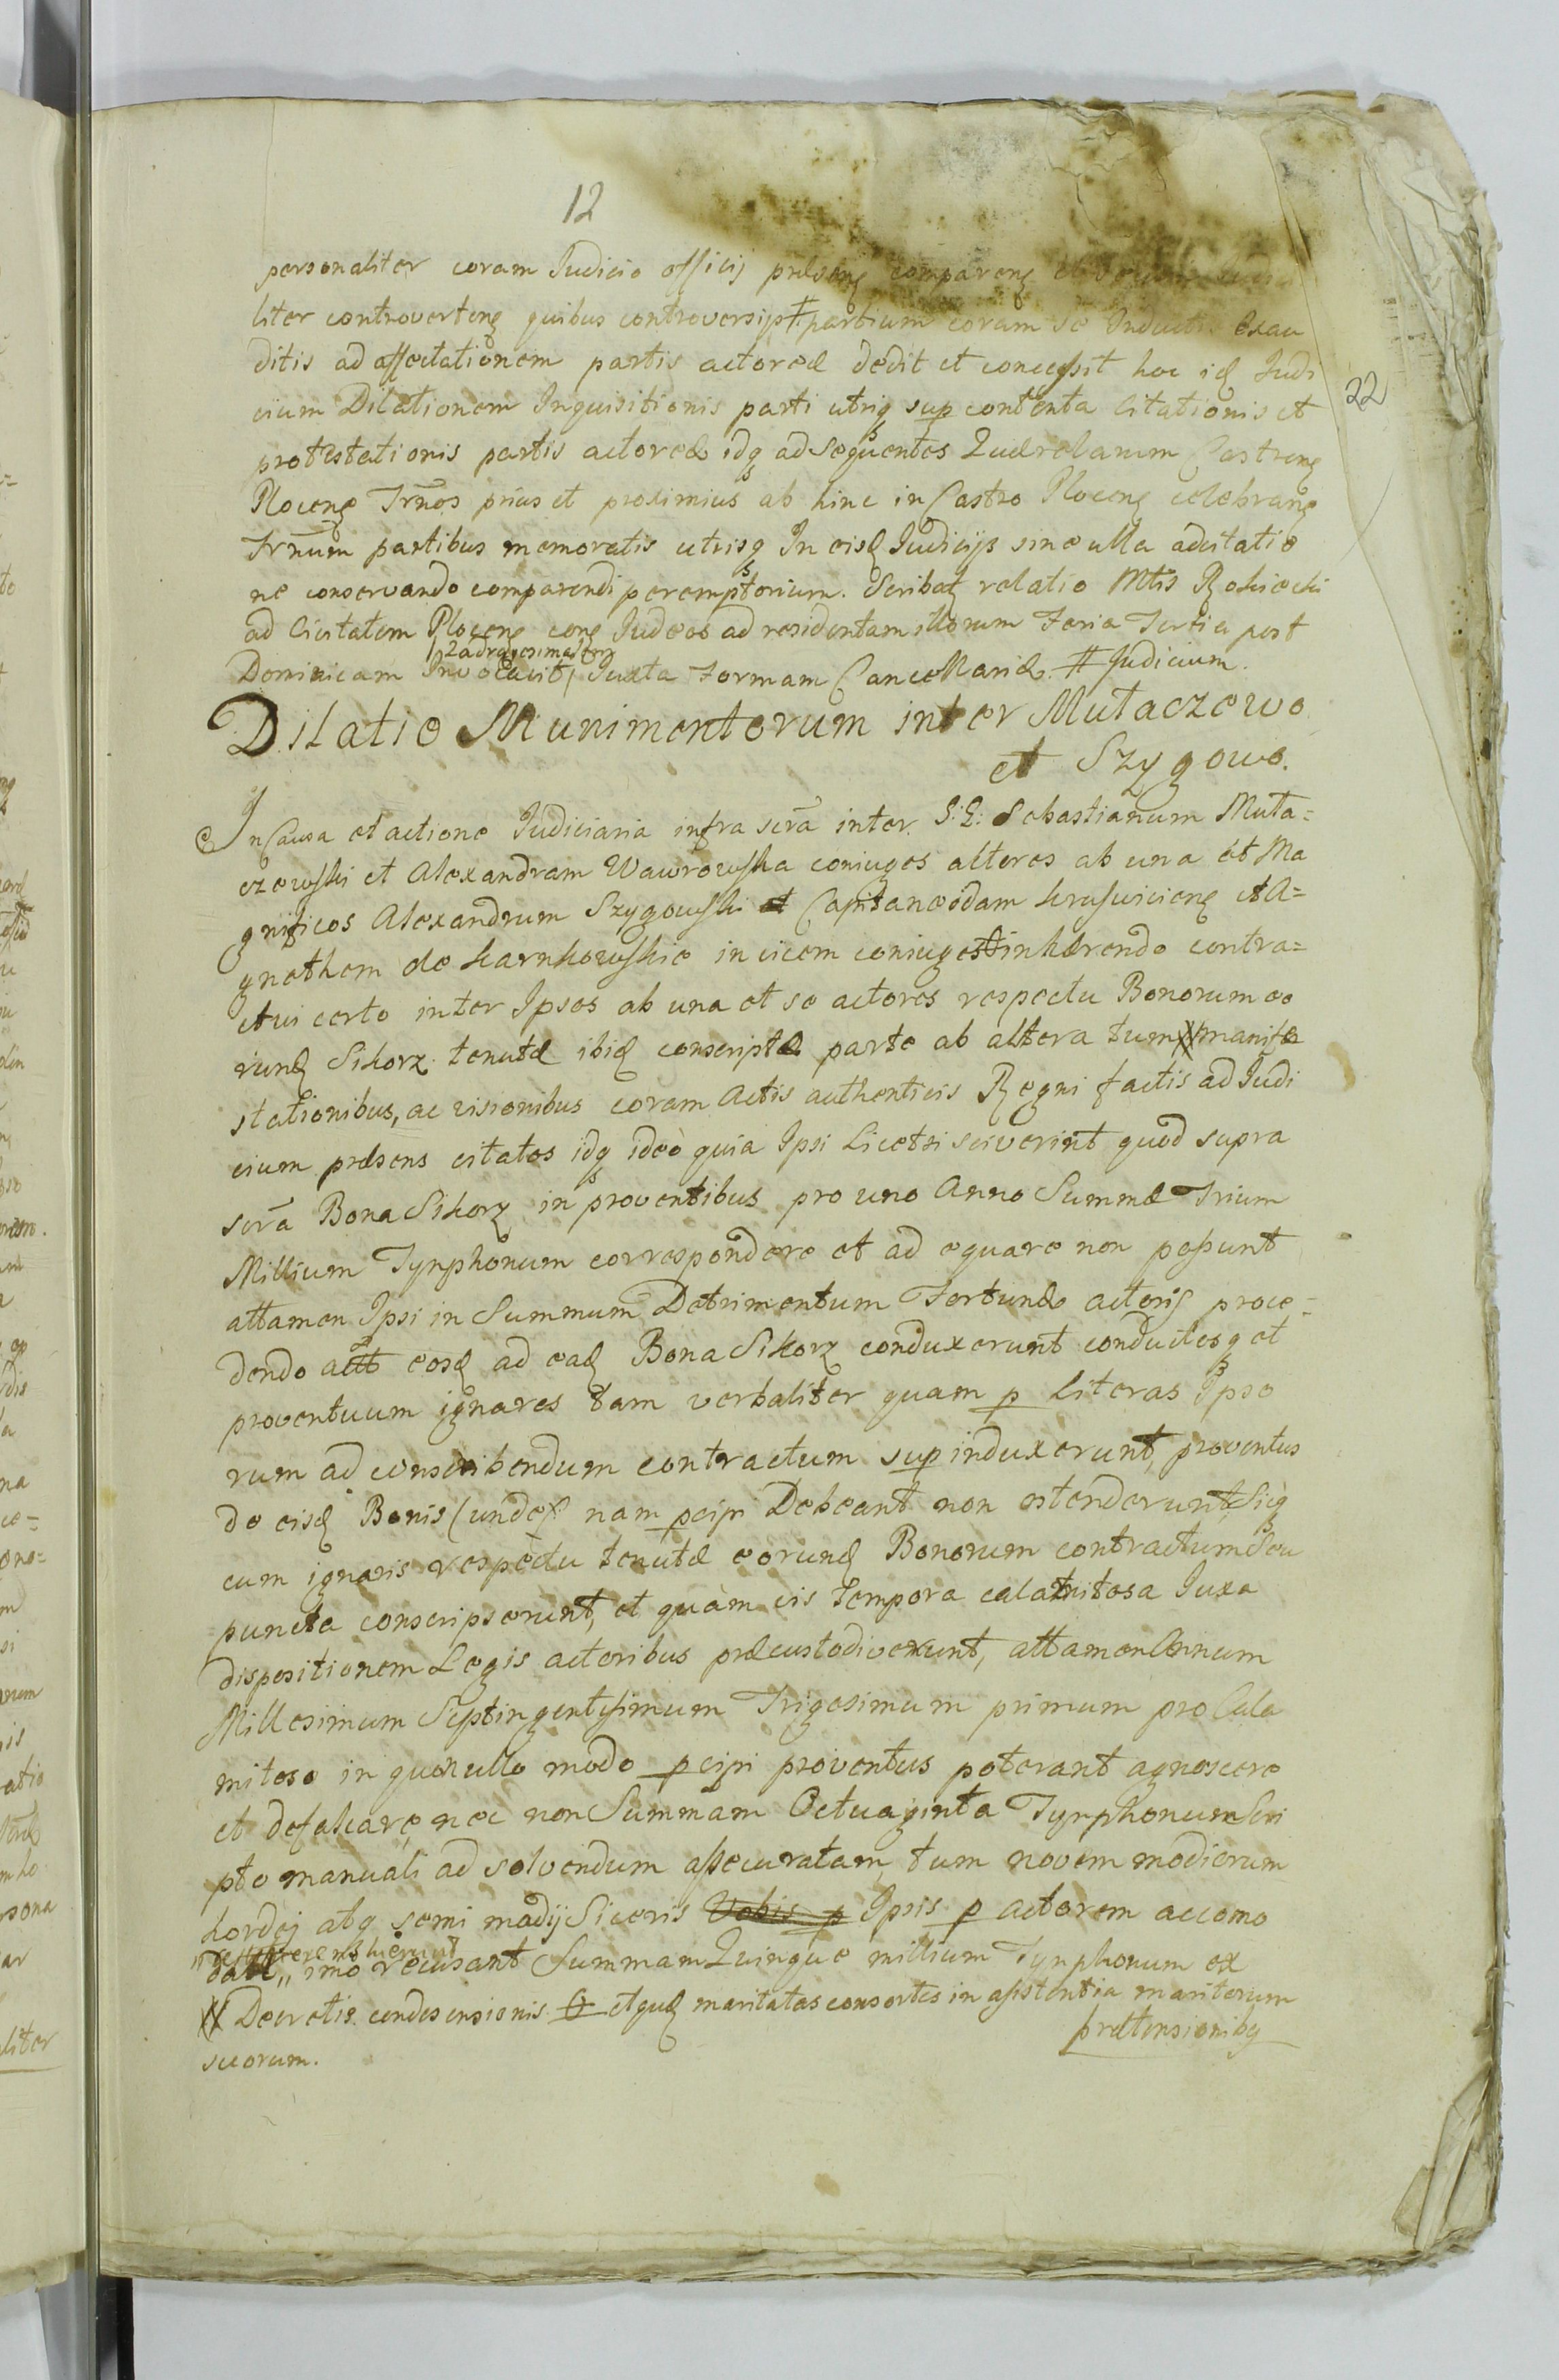 12
personaliter coram Iudicio officij præsenę comparenę et
liter controvertenę quibus controversijs ‡ partium coram se Inductis exau
ditis ad affectationem partis actoreæ dedit et concessit hoc idę Iudi
22
cium Dilationem Inquisitionis parti utriqꝫ sup contenta Citationis et
protestationis partis actoreæ idqꝫ ad sequentes Quærelarum Castrenę
Plocenę Trn̄os prius et proximius ab hinc in Castro Plocenę celebranę
Trn̄um partibus memoratis utrisqꝫ In eisdę Iudicijs sine ulla adcitatio
ne conservando comparendi peremptorium. Scribaę relatio Mtis Rokicki
ad Civitatem Plocenę conę Iudæos ad residentiam illorum Feria Tertia post
Dominicam Invocavit / Iuxta Formam Cancellariæ. # Iudicium.
Dilatio Munimentorum inter Mutaczewo
et Szygowo.
In Causa et actione Iudiciaria infra scrā inter. G: G: Sebastianum Muta=
czewski et Alexandram Wawrowska coniuges alteros ab una et Ma
gnificos Alexandrum Szygowski et Capitaneidam Krusvicienę et A=
gnethem de Karnkowskie invicem coniuges ‡ inhærendo contra=
ctui certo inter Ipsos ab una et se actores respectu Bonorum eo
rundę Sikorz tenutæ ibidę conscriptæ parte ab altera tum # manife
stationibus, ac visionibus coram Actis authenticis Regni factis ad Iudi
cium præsens citatos idqꝫ ideò quia Ipsi Licet si sciverint quod supra
scrā Bona Sikorz in proventibus pro uno Anno Summæ Trium
Millium Tynphonum correspondere et ad equare non possunt
attamen Ipsi in Summum Detrimentum Fortunæ actoris proce=
dendo eosdę ad eadę Bona Sikorz conduxerunt conductosqꝫ et
proventuum ignaros tam verbaliter quam p Literas Ipso
rum ad conscribendum contractum sup induxerunt, proventus
de eisdę Bonis (unde nam pcipi Debeant non ostenderunt, sicqꝫ
cum ignaris respectu tenutæ eorundę Bonorum contractum seu
puncta conscripserunt, et quàm vis tempora calamitosa Iuxa
dispositionem Legis actoribus præcustodiverunt, attamen Annum
Millesimum Septingentesimum Trigesimum primum pro Cala
mitoso in quo nullo modo pcipi proventus poterant agnoscere
et defalcare nec non Summam Octuaginta Tynphonum Scri
pto manuali ad solvendum assecuratam, tum novem modiorum
hordej atqꝫ semi modij Siceris Vobis p Ipsis p actorem accomo
imo recusant Summam Quinque millium Tynphonum ex
# Decretis condescensionis & etquę maritatas consortes in assistentia maritorum
prætensionibꝫ
suorum.